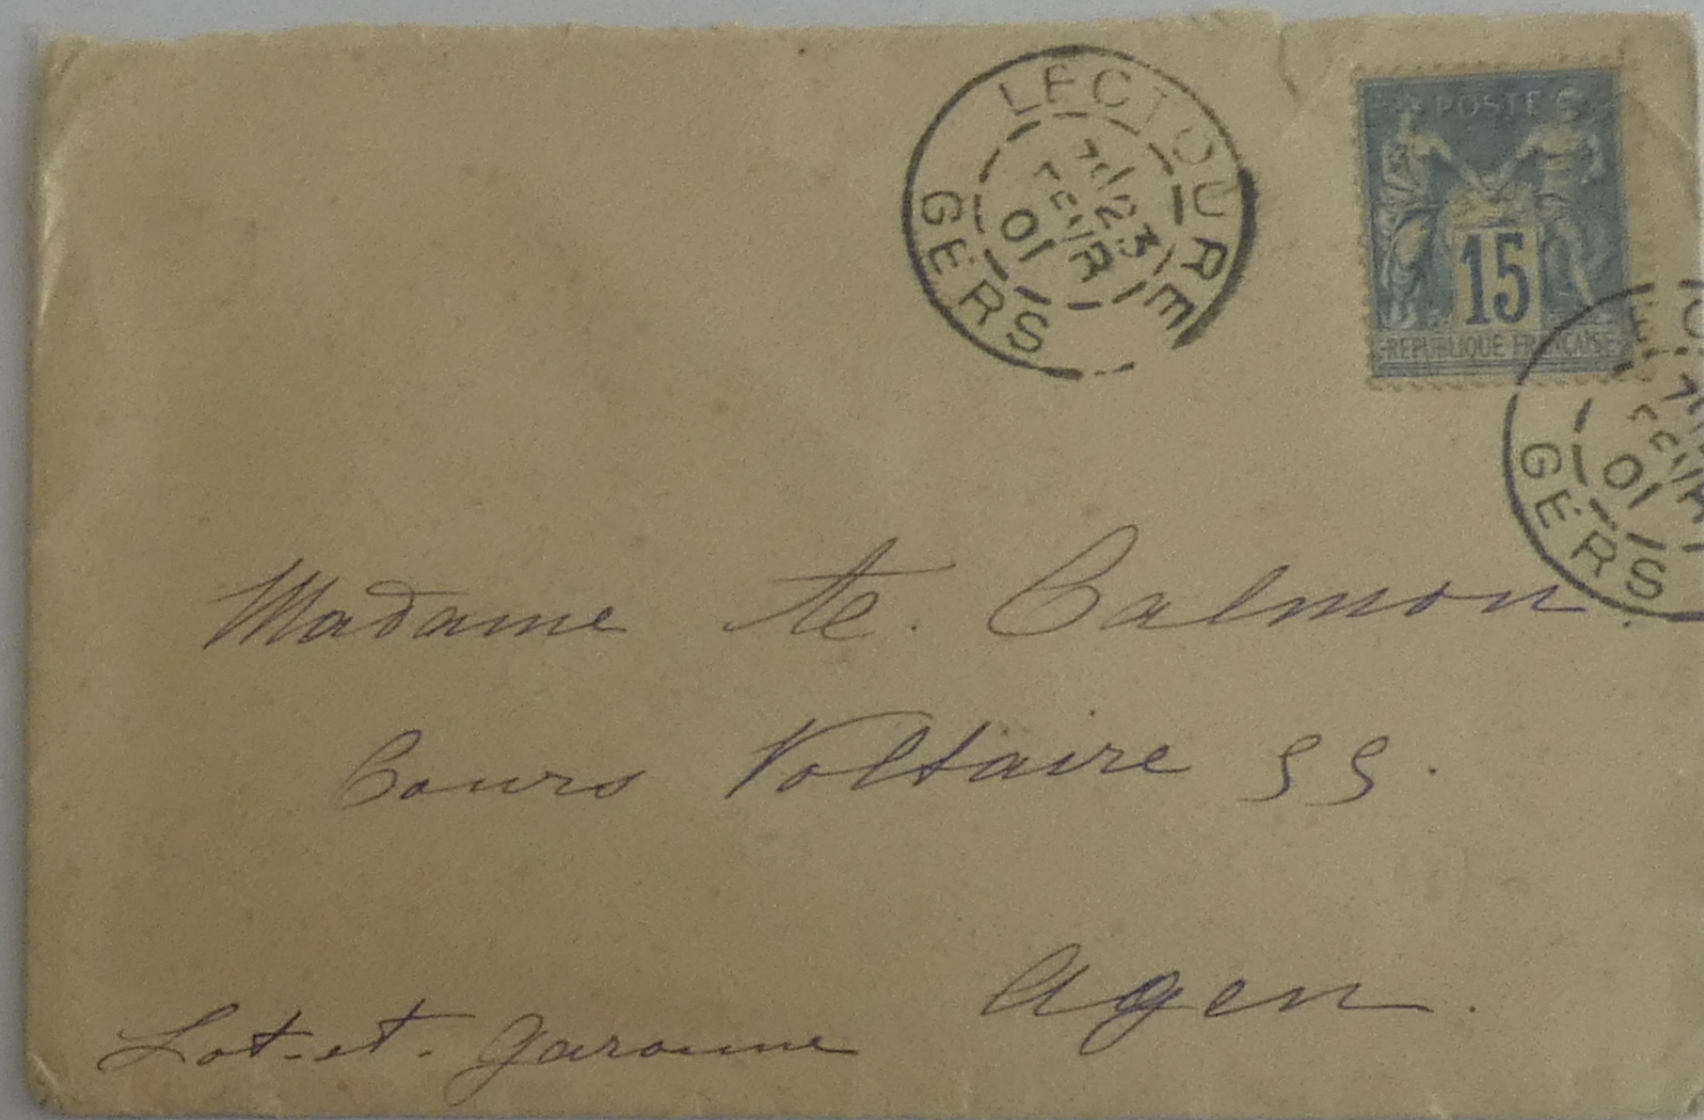 LECTOURE
23
FEVR
01
GERS
POSTES
15
REPUBLIQUE FRANÇAISE
01
GERS
Madame te. Calmon.
Cours Voltaire 55.
Agen.
Lot-et-Garonne